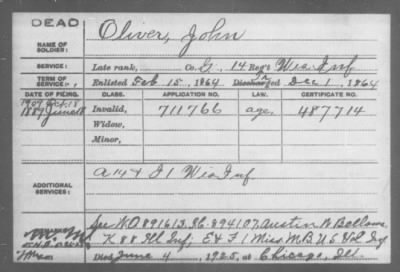 DEAD
NAME OF SOLDIER: Oliver, John
SERVICE: Late rank, Co. G, 14 Reg't Wis Inf
TERM OF SERVICE: Enlisted Feb 15, 1864 Discharged Tr Dec 1, 1864
DATE OF FILING. CLASS. APPLICATION NO. LAW. CERTIFICATE NO.
1907 Oct. 18
1889 June Invalid, 711766 age 487714
Widow,
Minor,
ADDITIONAL SERVICES: A 14 & I 1 Wis Inf
See W.O. 891613. Sb. 894107 Austin W Bellows
K 88 Ill Inf; E & F 1 Miss M.B. U S Vol Inf
Died June 4, 1925, at Chicago, Ill.